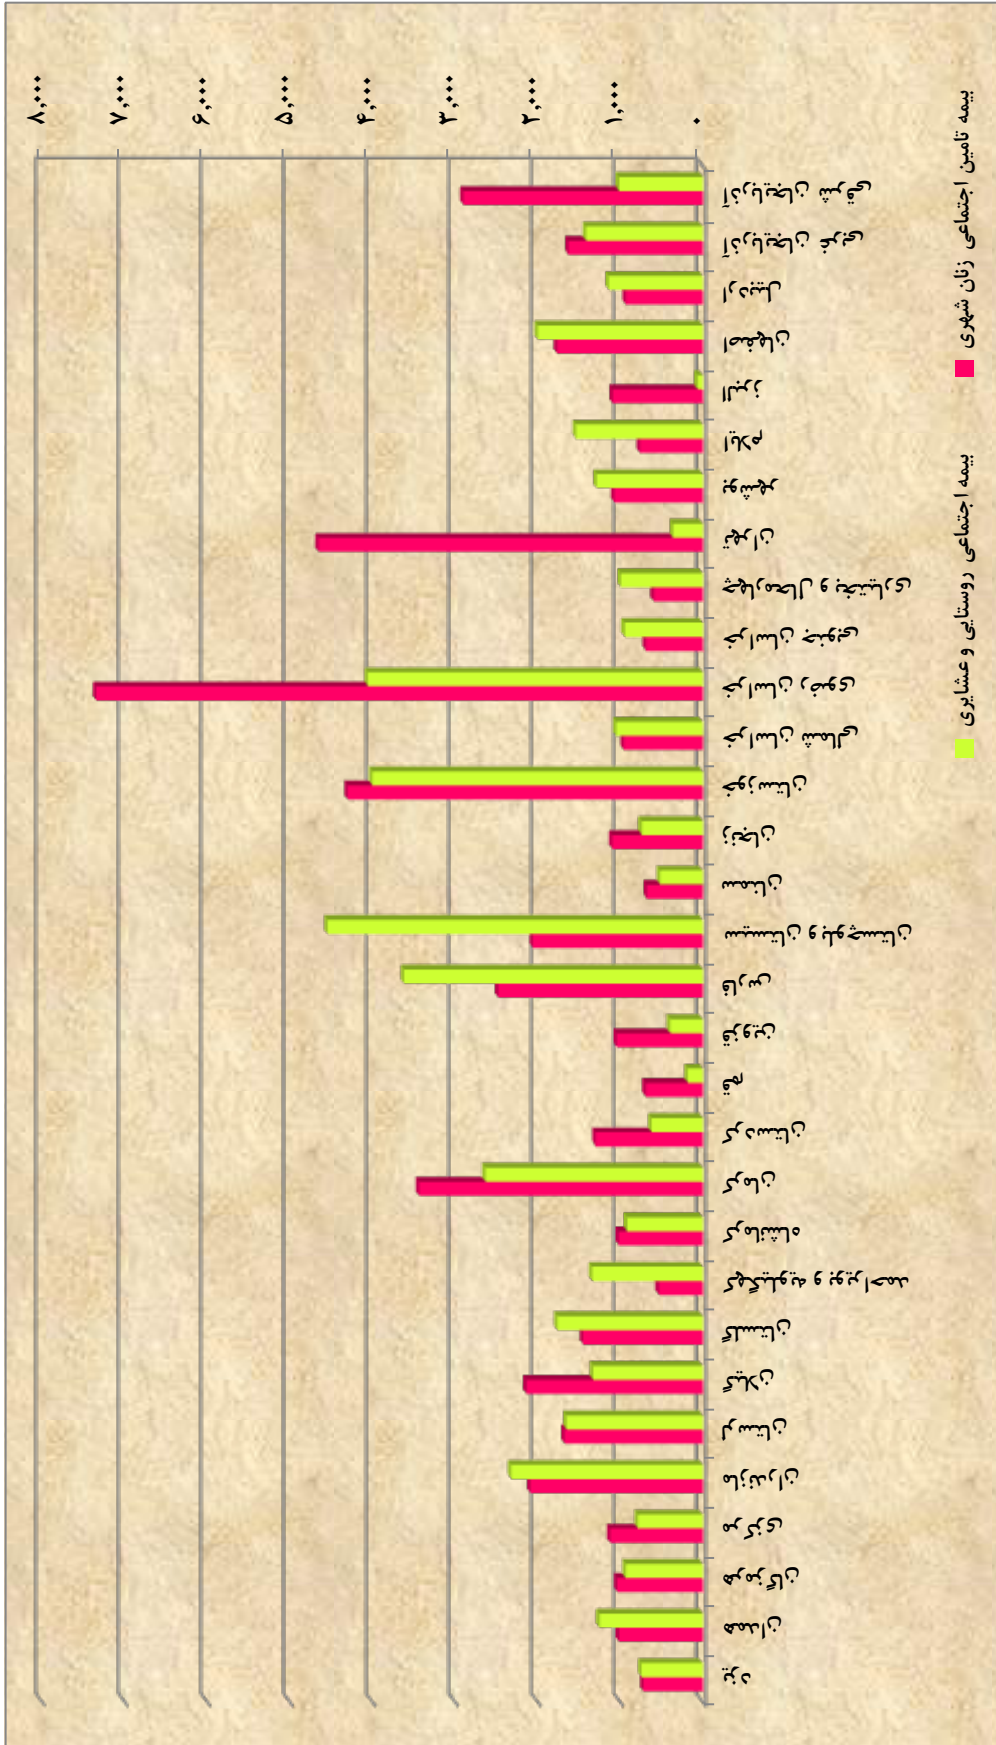 ۸,۰۰۰
۷,۰۰۰
۶,۰۰۰
۵,۰۰۰
۴,۰۰۰
۳,۰۰۰
۲,۰۰۰
۱,۰۰۰
۰
آذربایجان شرقی
آذربایجان غربی
اردبیل
اصفهان
البرز
ایلام
بوشهر
تهران
چهارمحال و بختیاری
خراسان جنوبی
خراسان رضوی
خراسان شمالی
خوزستان
زنجان
سمنان
سیستان و بلوچستان
فارس
قزوین
قم
کردستان
کرمان
کرمانشاه
کهگیلویه و بویراحمد
گلستان
گیلان
لرستان
مازندران
مرکزی
هرمزگان
همدان
یزد
بیمه تامین اجتماعی زنان شهری
بیمه اجتماعی روستایی و عشایری